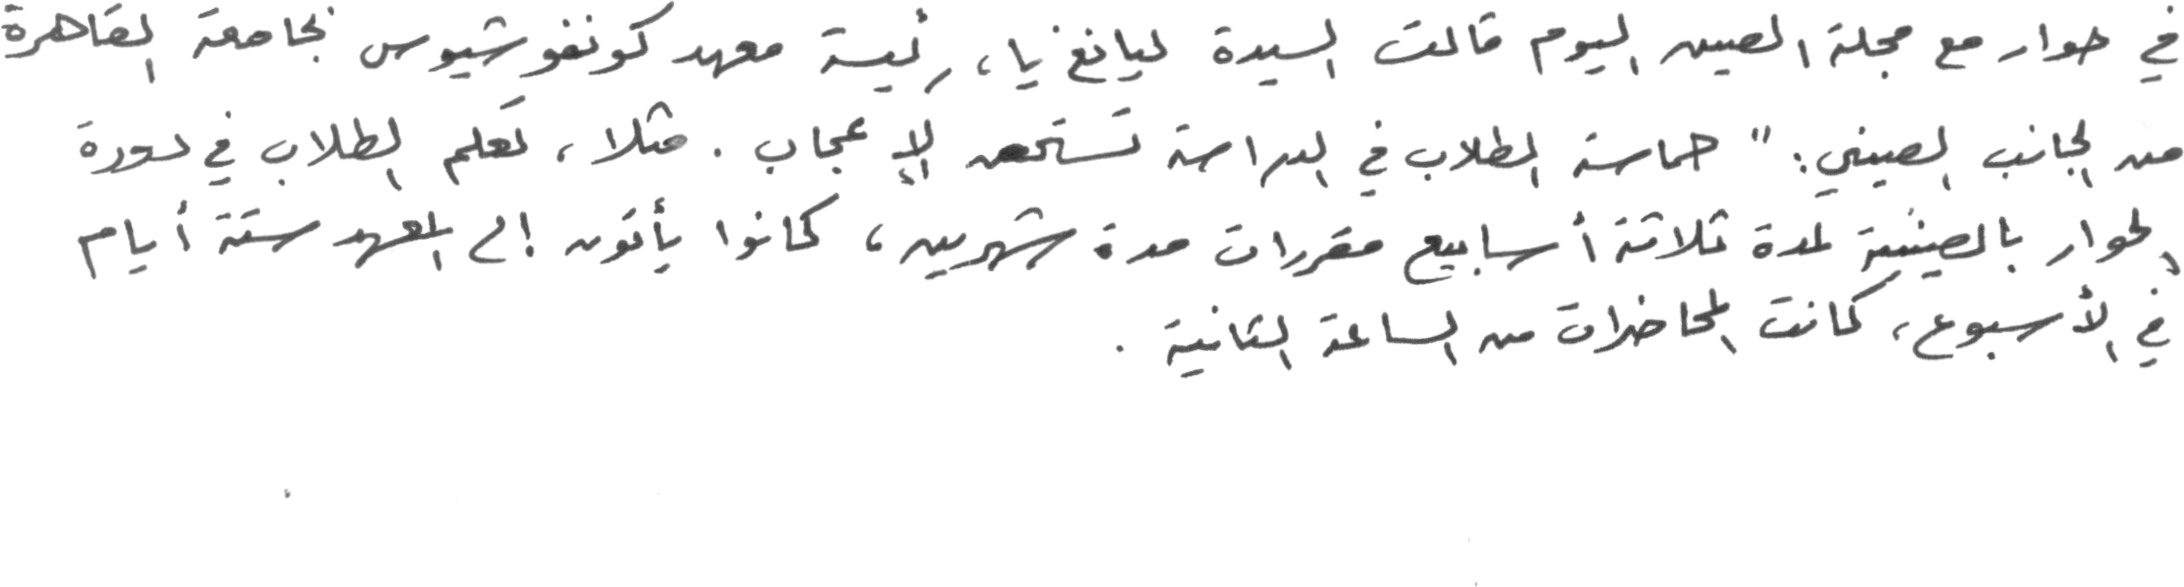 في حوار مع مجلة الصين اليوم قالت السيدة ليانغ يا، رئيسة معهد كونفوشيوس بجامعة القاهرة
من الجانب الصيني: " حماسة الطلاب في الدراسة تستحق الإعجاب. مثلا، تعلم الطلاب في دورة
الحوار بالصينية لمدة ثلاثة أسابيع مقررات مدة شهرين، كانوا يأتون إلى المعهد ستة أيام
في الأسبوع، كانت المحاضرات من الساعة الثانية .